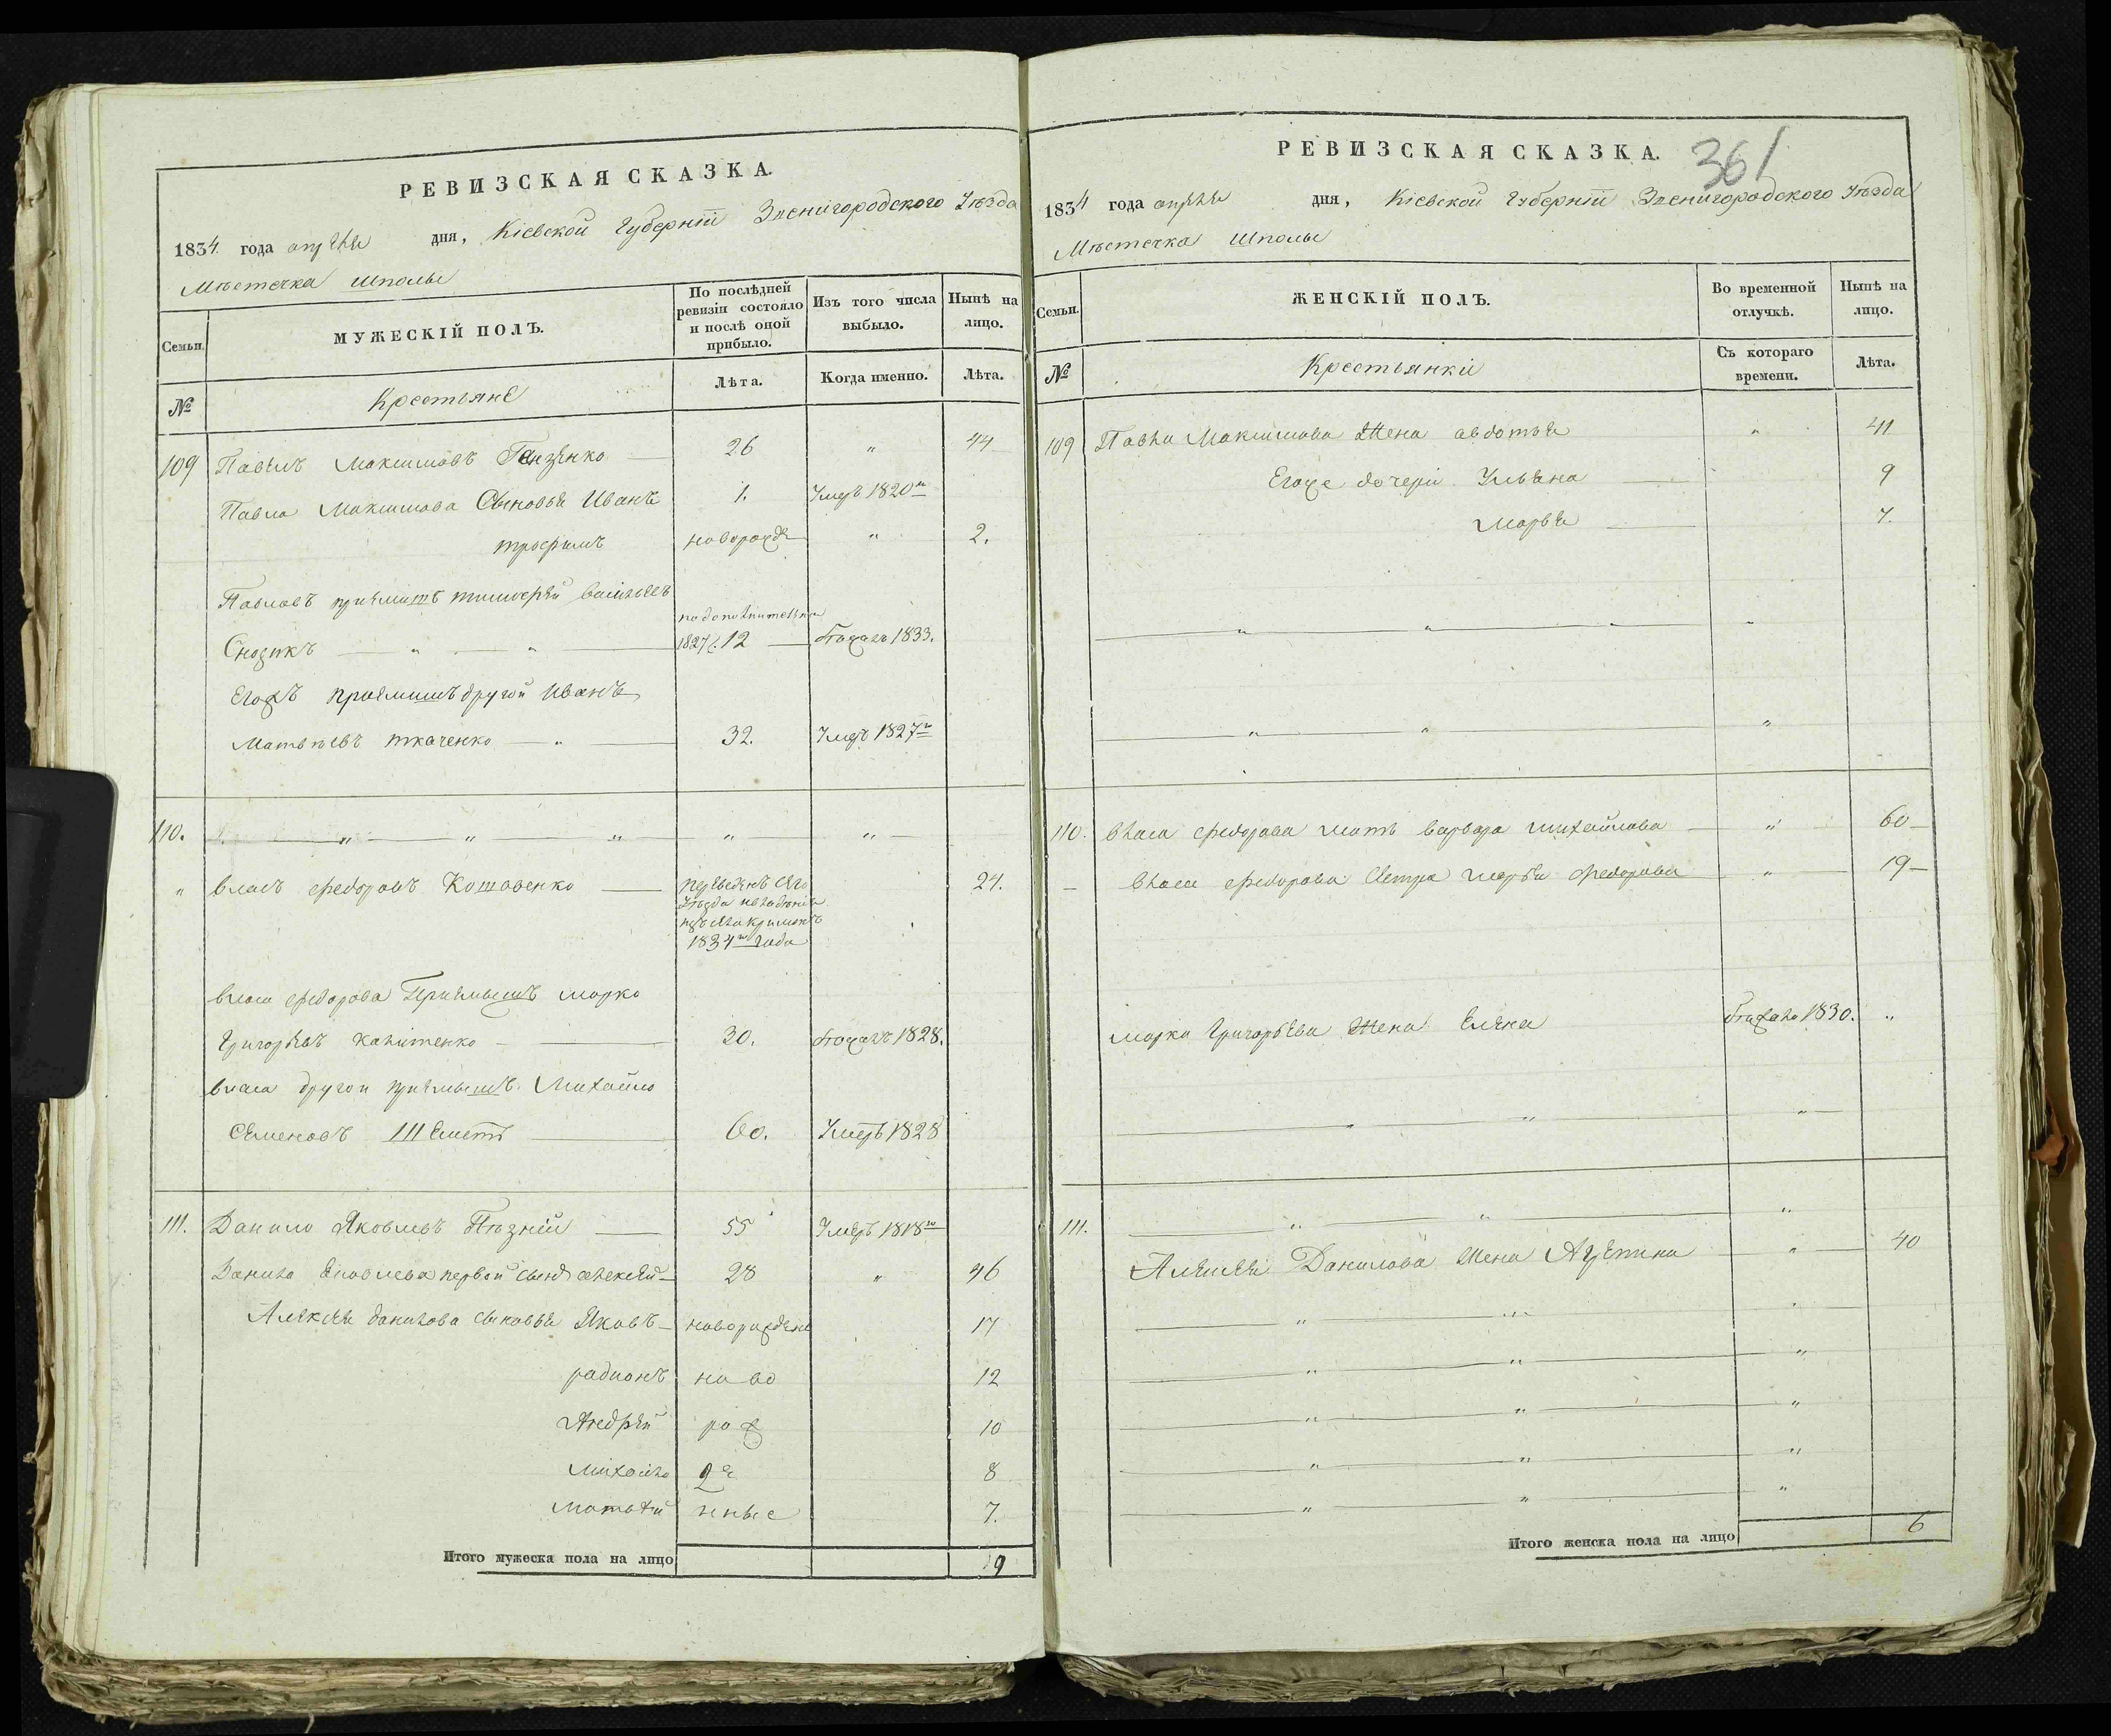 РЕВИЗСКАЯ СКАЗКА.
1834 года апреля дня, Кіевской Губерніи Звенигородского Уѣзда
Мѣстечка Шполы
Семьи.
МУЖЕСКІЙ ПОЛЪ.
По послѣдней ревизіи состояло и послѣ оной прибыло.
Изъ того числа выбыло.
Нынѣ на лицо.
№
Крестьяне
Лѣта.
Когда именно.
Лѣта.
109 Павелъ Максимовъ 26 " 44
Павла Максимова Сыновья Иванъ 1. Умеръ 1820го
трофимъ новорожде " 2.
Павловъ приемышъ тимофей васильевъ
по дополнительно
1827 г. 12 бежалъ 1833.
Егожъ приемышъ другой Иванъ
Матвѣевъ ткаченко " 32. Умеръ 1827го
110. " " " " "
" власъ федоровъ 24.
переведенъ сего
Уезда
1834го Года
власа федорова Приемышъ марко
Григорьевъ 30. бежалъ 1828.
власа другой приемышъ Михайло
Семеновъ 60. Умеръ 1828
111. Данило Яковлевъ 55 Умеръ 1818го
Данила Яковлева первой сынъ алексей 28 " 46
Алексея данилова сыновья Яковъ новорожден 17
радионъ но во 12
Андрей ро ж 10
михайло де 8
матвей нные 7.
Итого мужеска пола на лицо 9
РЕВИЗСКАЯ СКАЗКА.
361
1834 года апреля дня, Кіевской Губерніи Звенигородского Уѣзда
Мѣстечка Шполы
Семьи.
ЖЕНСКІЙ ПОЛЪ.
Во временной отлучкѣ.
Нынѣ на лицо.
№
Крестьянки
Съ котораго времени.
Лѣта.
109 Павла Максимова Жена авдотья " 41
Егоже дочери Ульяна 9
Марья 7.
" " "
" " "
110. власа федорова мать варвара михайлова " 60
власа федорова Сестра марья федорова " 19
марка Григорьева Жена Елена бежала 1830. "
" " "
111. " " "
Алексея Данилова Жена " 40
" " "
" " "
" " "
" " "
" " "
Итого женска пола на лицо 6